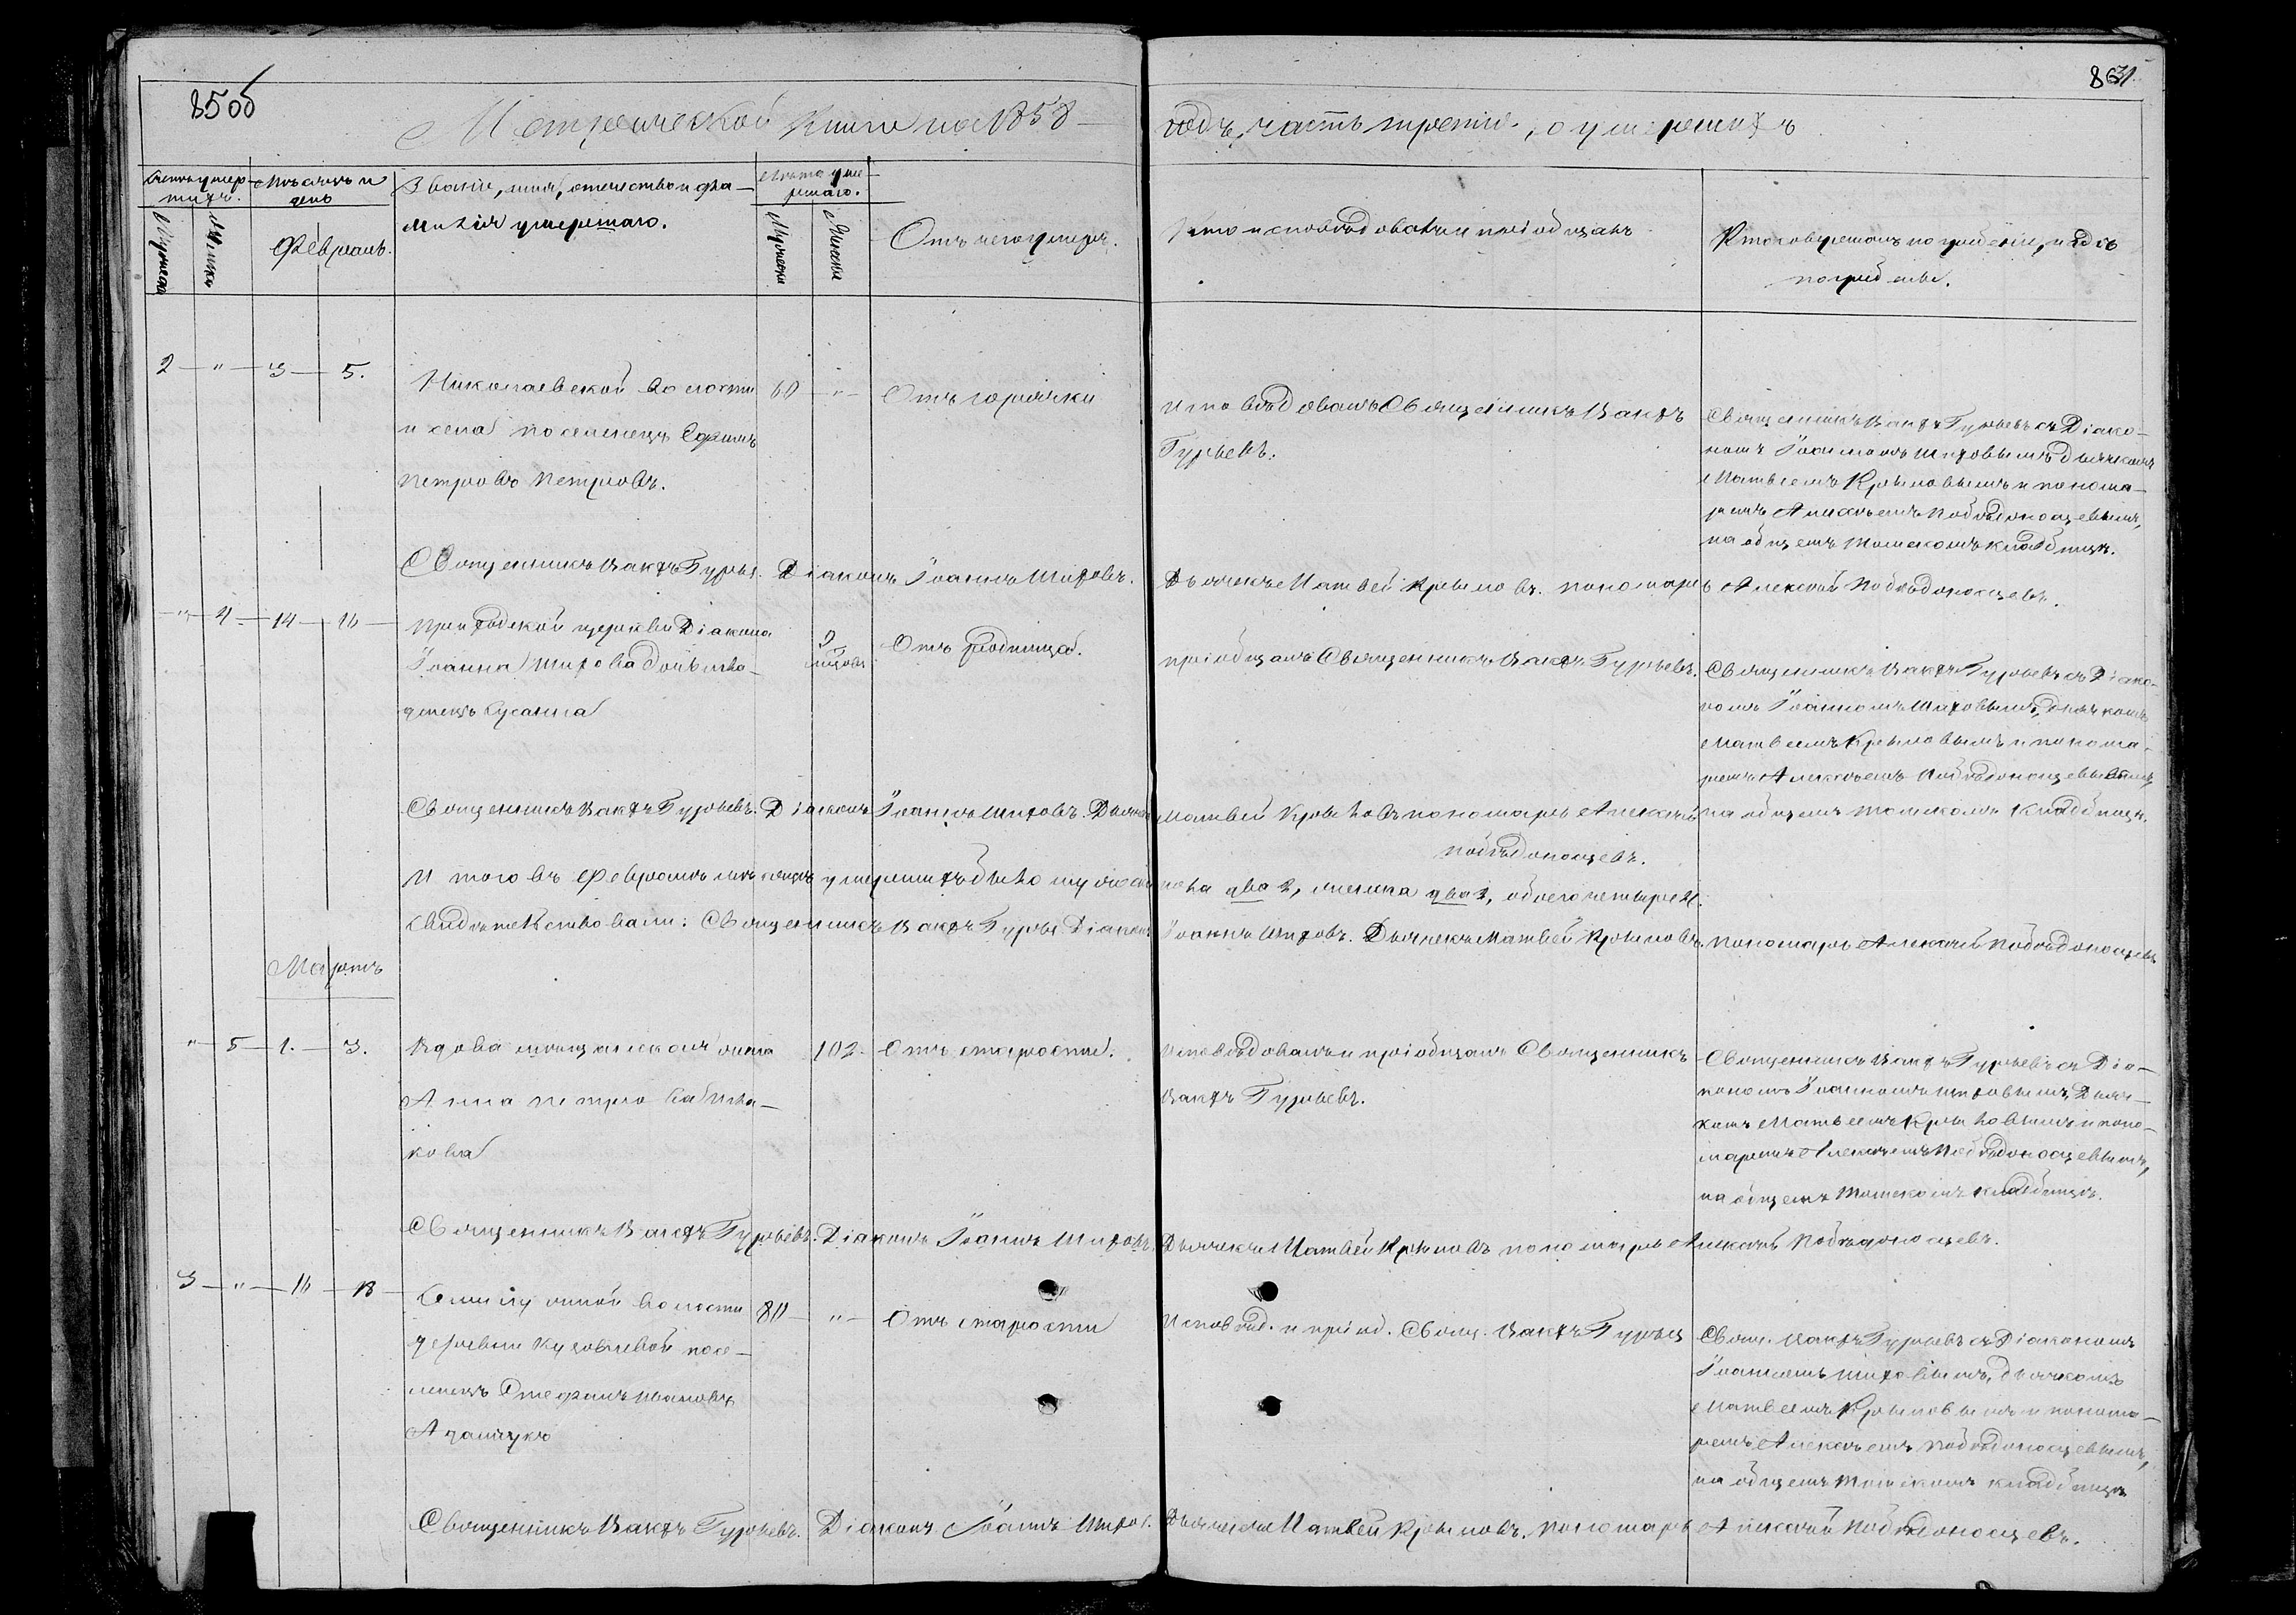 85об
Метрической книги на 1858
годъ, часть третія, о умершихъ
Счетъ умер-
шихъ.
Мѣсяцъ и
день
Званіе, имя, отечество и фа-
милія умершаго.
Лѣта уме-
ршаго.
Мужеска
Женска
Февраль.
Мужеска
Женска
Отъ чего умеръ.
Кто исповѣдовалъ и пріобщалъ
Кто совершалъ погребеніе, и гдѣ
погребены.
2 " 3 5.
Николаевской волости
и села поселенецъ Ефимъ
Петровъ Петровъ.
60 "
Отъ горячки
Исповѣдовалъ Священникъ Вакхъ
Гурьевъ.
Священникъ Вакхъ Гурьевъ съ Діако-
номъ Іоанномъ Титовымъ, дьячкомъ
Матвеемъ Крыловымъ и понома-
ремъ Алексѣемъ Побѣдоносцевымъ,
на общемъ Томскомъ кладбищѣ.
Священникъ Вакхъ Гурьев. Діаконъ Іоаннъ Титовъ. Дьячекъ Матвей Крыловъ. пономарь Алексѣй Побѣдоносцевъ.
" 4 14 16
Градской церкви Діакона
Іоанна Титова дочь мла-
денецъ Сусанна
2
мѣсяц.
Отъ родимца.
пріобщалъ Священникъ Вакхъ Гурьевъ.
Священникъ Вакхъ Гурьевъ съ Діако-
номъ Іоанномъ Титовымъ, дьячкомъ
Матвеемъ Крыловымъ и понома-
ремъ Алексѣемъ Побѣдоносцевымъ,
на общемъ Томскомъ кладбищѣ.
Священникъ Вакхъ Гурьевъ. Діаконъ Іоаннъ Титовъ. Дьячекъ Матвей Крыловъ пономарь Алексѣй
Побѣдоносцевъ.
Итого въ Февралѣ мѣсяцѣ умершихъ было мужеска пола два 2, женска два 2, обоего четыре 4.
Свидѣтельствовали: Священникъ Вакхъ Гурьев Діаконъ Іоаннъ Титовъ. Дьячекъ Матвей Крыловъ. пономарь Алексѣй Побѣдоносцевъ
Мартъ
" 5 1. 3.
Вдова мѣщанская жена
Анна Петрова
кова
102.
Отъ старости.
Исповѣдовалъ и пріобщалъ Священникъ
Вакхъ Гурьевъ.
Священникъ Вакхъ Гурьевъ съ Діа-
кономъ Іоанномъ Титовымъ, Дьяч-
комъ Матвеемъ Крыловымъ и поно-
маремъ Алексѣемъ Побѣдоносцевымъ,
на общемъ Томскомъ кладбищѣ.
Священникъ Вакхъ Гурьевъ. Діаконъ Іоаннъ Титовъ. Дьячекъ Матвей Крыловъ пономарь Алексѣй Побѣдоносцевъ.
3 " 16 18
волости
деревни посе-
ленецъ Стефанъ Ивановъ
80 "
Отъ старости
Исповѣд. и пріоб. Свящ. Вакхъ Гурьев
Свящ. Вакхъ Гурьевъ съ Діакономъ
Іоанномъ Титовымъ, дьячкомъ
Матвеемъ Крыловымъ и понома-
ремъ Алексѣемъ Побѣдоносцевымъ,
на общемъ Томскомъ кладбищѣ
Священникъ Вакхъ Гурьевъ. Діаконъ Іоаннъ Титов. Дьячекъ Матвей Крыловъ. пономарь Алексѣй Побѣдоносцевъ.